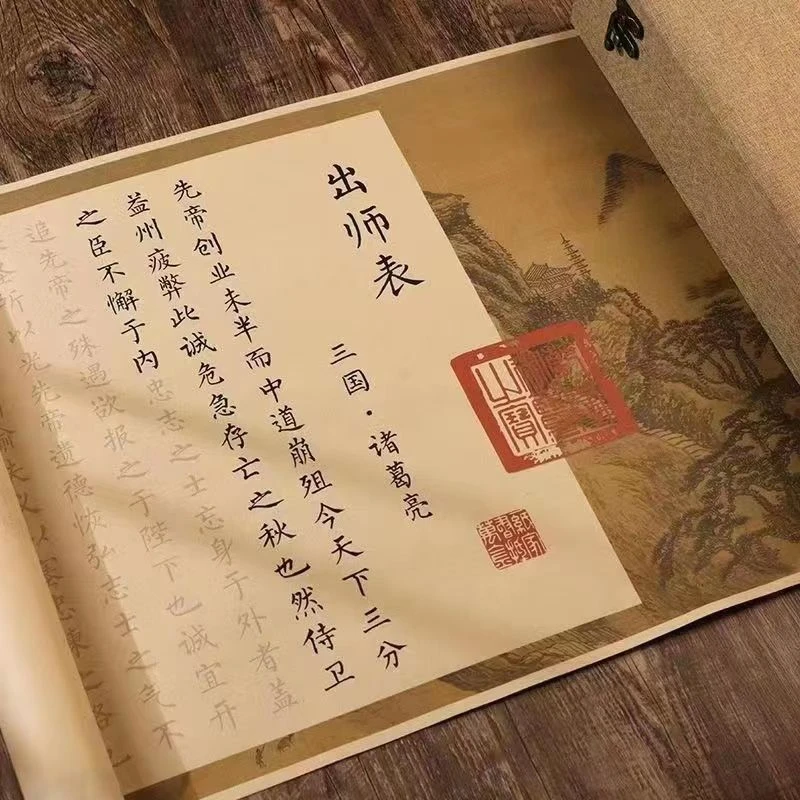 出师表
三国·诸葛亮
先帝创业未半而中道崩殂今天下三分
益州疲弊此诚危急存亡之秋也然侍卫
之臣不懈于内忠志之士忘身于外者盖
追先帝之殊遇欲报之于陛下也诚宜开
以光先帝遗德恢弘志士之气不
喻失义以塞忠谏之路也